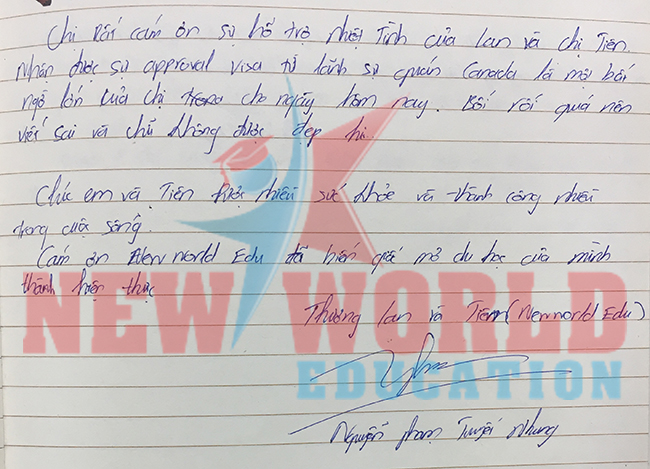 Chị Rất cảm ơn sự hỗ trợ nhiệt tình của Lan và chị Tiên.
Nhận được sự approval visa từ lãnh sự quán Canada là một bất
ngờ lớn của chị trong cho ngày hôm nay. Bối rối quá nên
viết sai và chữ không được đẹp hi..
Chúc em và Tiên được nhiều sức khỏe và thành công nhiều
trong cuộc sống.
Cảm ơn Newworld Edu đã biến giấc mơ du học của mình
thành hiện thực
NEW WORLD
EDUCATION
Thương Lan và Tiên (Newworld Edu)
Nguyễn Phạm Tuyết Nhung